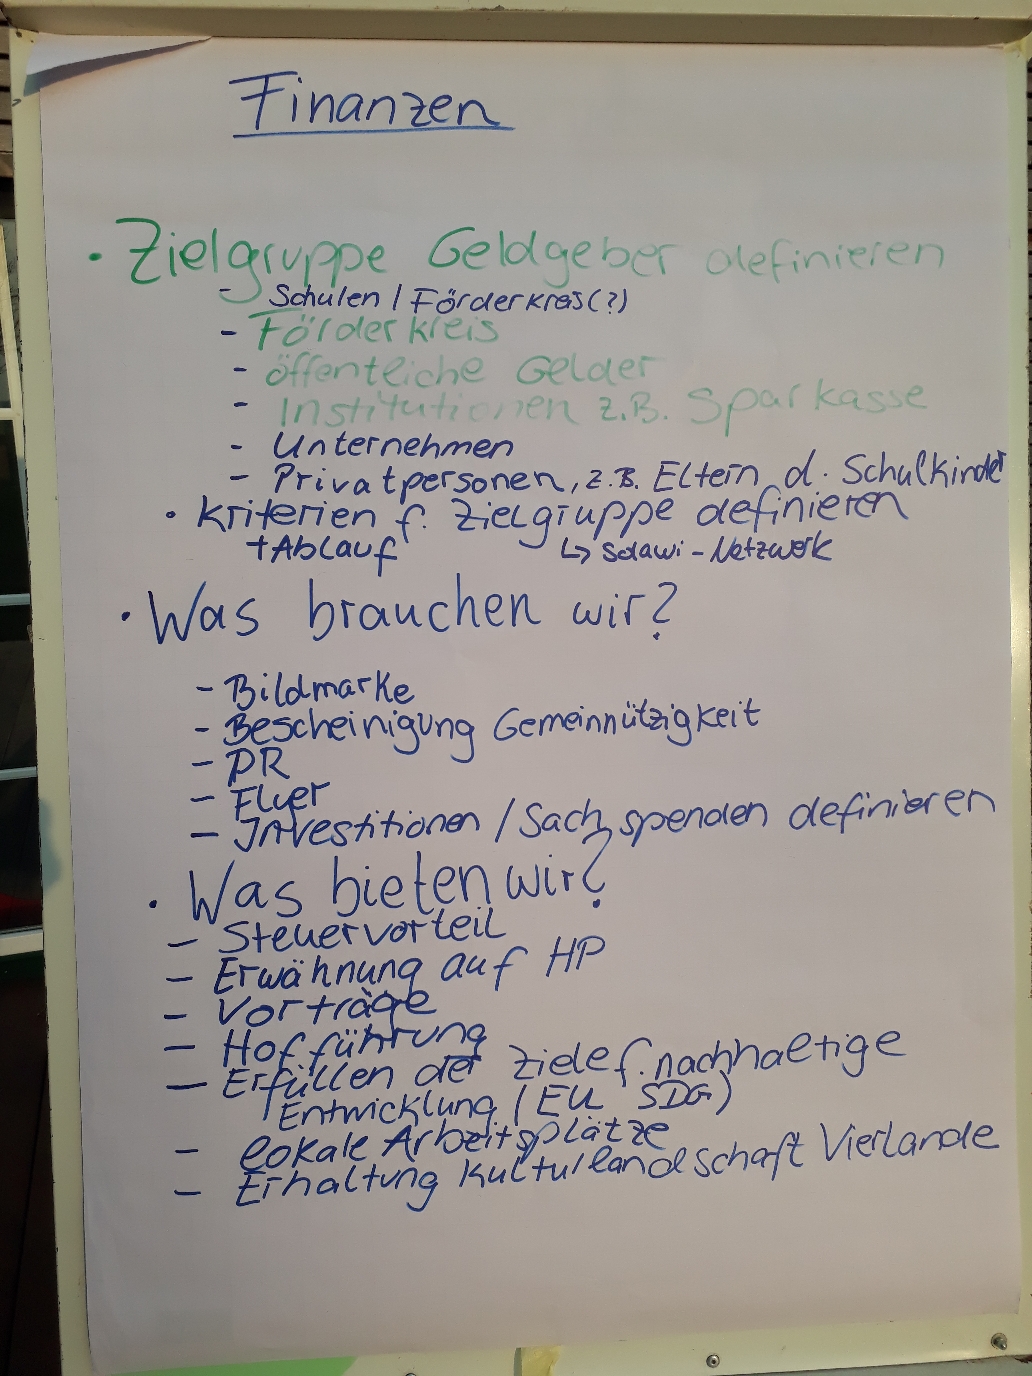 Finanzen
• Zielgruppe Geldgeber definieren
- Schulen / Förderkreis(?)
- Förderkreis
- öffentliche Gelder
- Institutionen z.B. Sparkasse
- Unternehmen
- Privatpersonen, z.B. Eltern d. Schulkinder
• Kriterien f. Zielgruppe definieren
+ Ablauf ↳ Solawi-Netzwerk
• Was brauchen wir?
- Bildmarke
- Bescheinigung Gemeinnützigkeit
- PR
- Flyer
- Investitionen / Sachspenden definieren
• Was bieten wir?
- Steuervorteil
- Erwähnung auf HP
- Vorträge
- Hofführung
- Erfüllen der Ziele f. nachhaltige
Entwicklung (EU SDG)
- lokale Arbeitsplätze
- Erhaltung Kulturlandschaft Vierlande